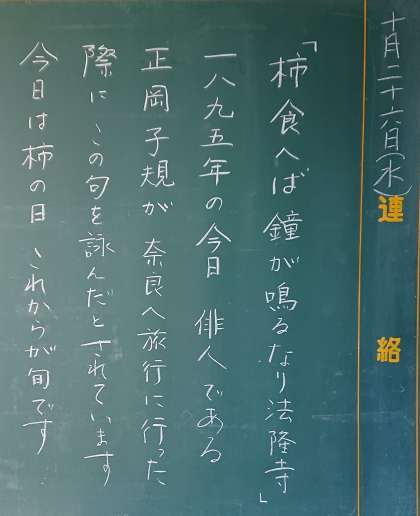 十月二十六日(水)
連絡
「柿食へば 鐘が鳴るなり法隆寺」
一八九五年の今日 俳人である
正岡子規が 奈良へ旅行に行った
際に この句を詠んだとされています
今日は柿の日 これからが旬です